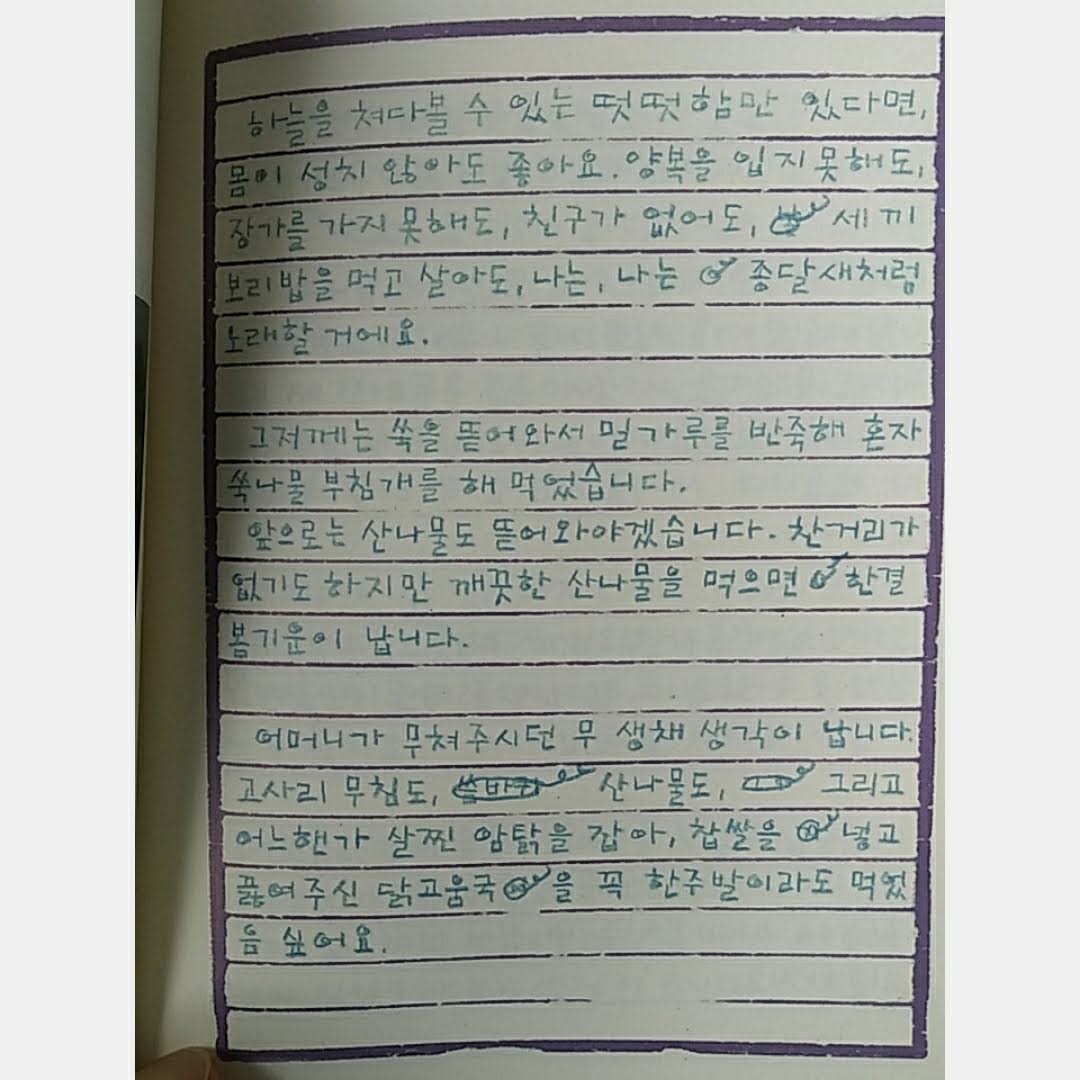 하늘을 쳐다볼 수 있는 떳떳함만 있다면,
몸이 성치 않아도 좋아요. 양복을 입지 못해도,
장가를 가지 못해도, 친구가 없어도, 세 끼
보리밥을 먹고 살아도, 나는, 나는 종달새처럼
노래할 거에요.
그저께는 쑥을 뜯어와서 밀가루를 반죽해 혼자
쑥나물 부침개를 해 먹었습니다.
앞으로는 산나물도 뜯어와야겠습니다. 찬거리가
없기도 하지만 깨끗한 산나물을 먹으면 한결
봄기운이 납니다.
어머니가 무쳐주시던 무 생채 생각이 납니다.
고사리 무침도, 산나물도, 그리고
어느핸가 살찐 암탉을 잡아, 찹쌀을 넣고
끓여주신 닭고움국을 꼭 한주발이라도 먹었
음 싶어요.